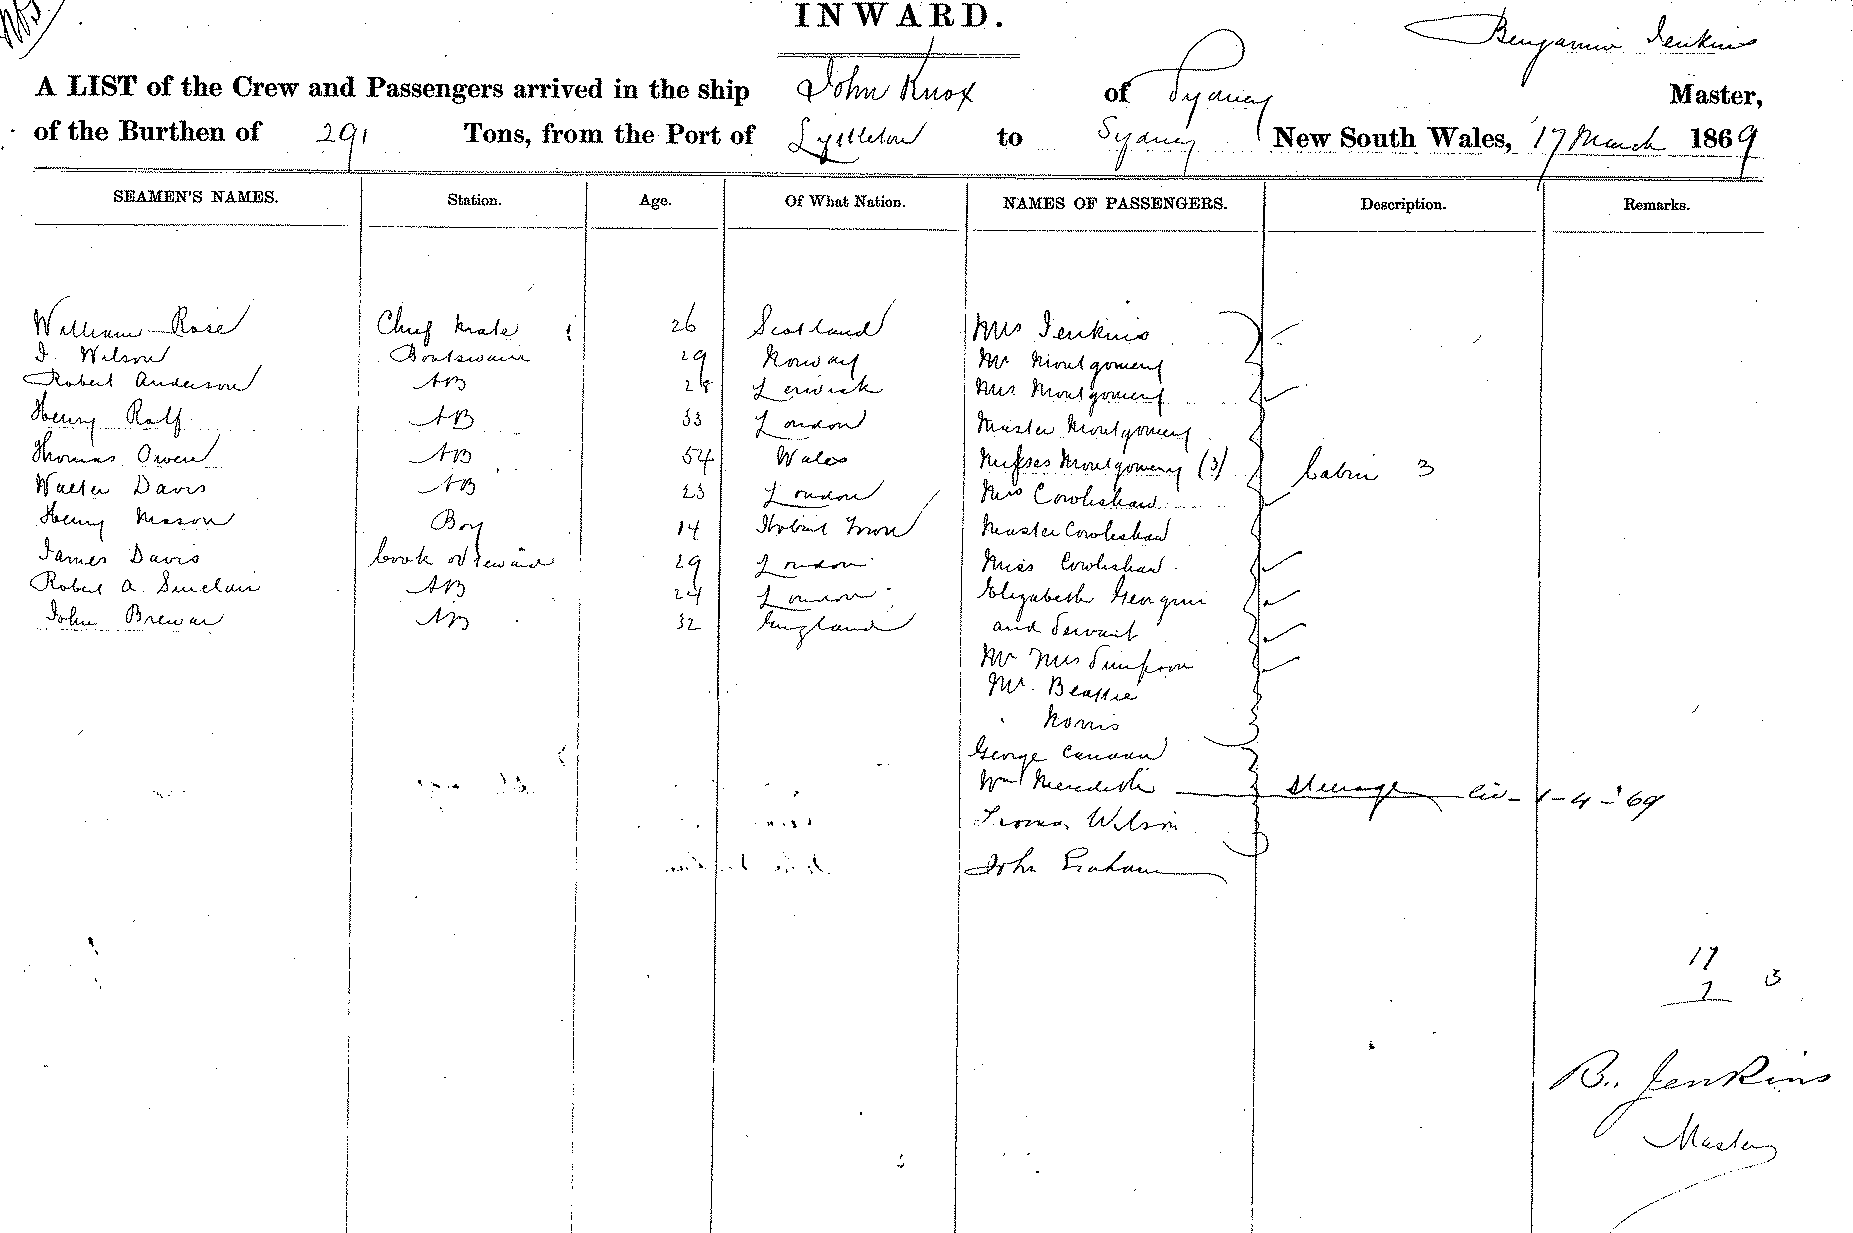 INWARD.
Benjamin Jenkins
A LIST of the Crew and Passengers arrived in the ship John Knox of Sydney Master,
of the Burthen of 291 Tons, from the Port of Lyttleton to Sydney New South Wales, 17 March 1869
SEAMEN'S NAMES. Station. Age. Of What Nation. NAMES OF PASSENGERS. Description. Remarks.
William Rose Chief Mate 26 Scotland Mrs Jenkins
J. Wilson Boatswain 29 Norway Mr Montgomery
Robert Anderson AB 28 Lerwick Mrs Montgomery
Henry Ralf AB 33 London Master Montgomery
Thomas Owen AB 54 Wales Misses Montgomery (3) Cabin 3
Walter Davis AB 23 London Mrs Cowlishaw
Henry Mason Boy 14 Hobart Town Master Cowlishaw
James Davis Cook Steward 29 London Miss Cowlishaw
Robert A. Sinclair AB 24 London Elizabeth
John Brewar AB 32 England and Servant
Mr Mrs Simpson
Mr. Beattie
Norris
George Canaan
Wm Meredith Steerage 1-4-69
Thomas Wilson
John Graham
17
7 3
B. Jenkins
Master